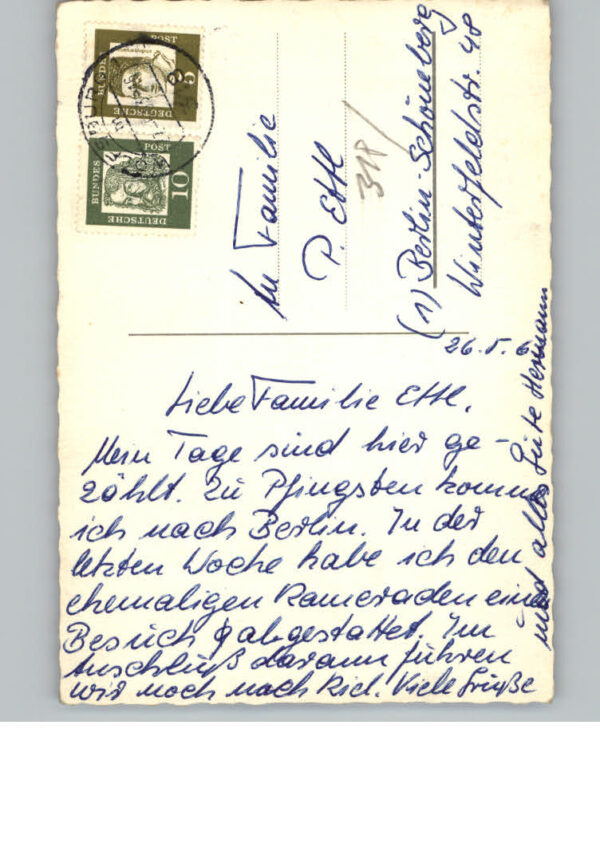 DEUTSCHE
BUNDES
POST
5
DEUTSCHE
BUNDES
POST
10
An Familie
P. Ettl
318/
(1) Berlin-Schöneberg
Winterfeldstr. 48
26.5.6
Liebe Familie Ettl.
Mein Tage sind hier ge-
zählt. Zu Pfingsten komme
ich nach Berlin. In der
letzten Woche habe ich den
ehemaligen Kameraden einen
Besuch abgestattet. Im
Anschluß daran führen
wir noch nach Kiel. Viele Grüße
und alles Gute Hermann